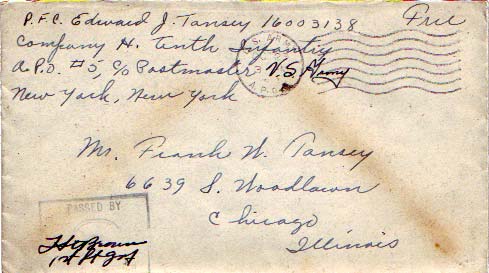 P.F.C. Edward J. Tansey 16003138 Free
Company H. Tenth Infantry
A.P.O. #5, c/o Postmaster U.S. Army
New York, New York
U.S. ARMY
A.P.O.
Mr. Frank W. Tansey
6639 S. Woodlawn
Chicago
Illinois
PASSED BY
Brown
1st Lt Inf